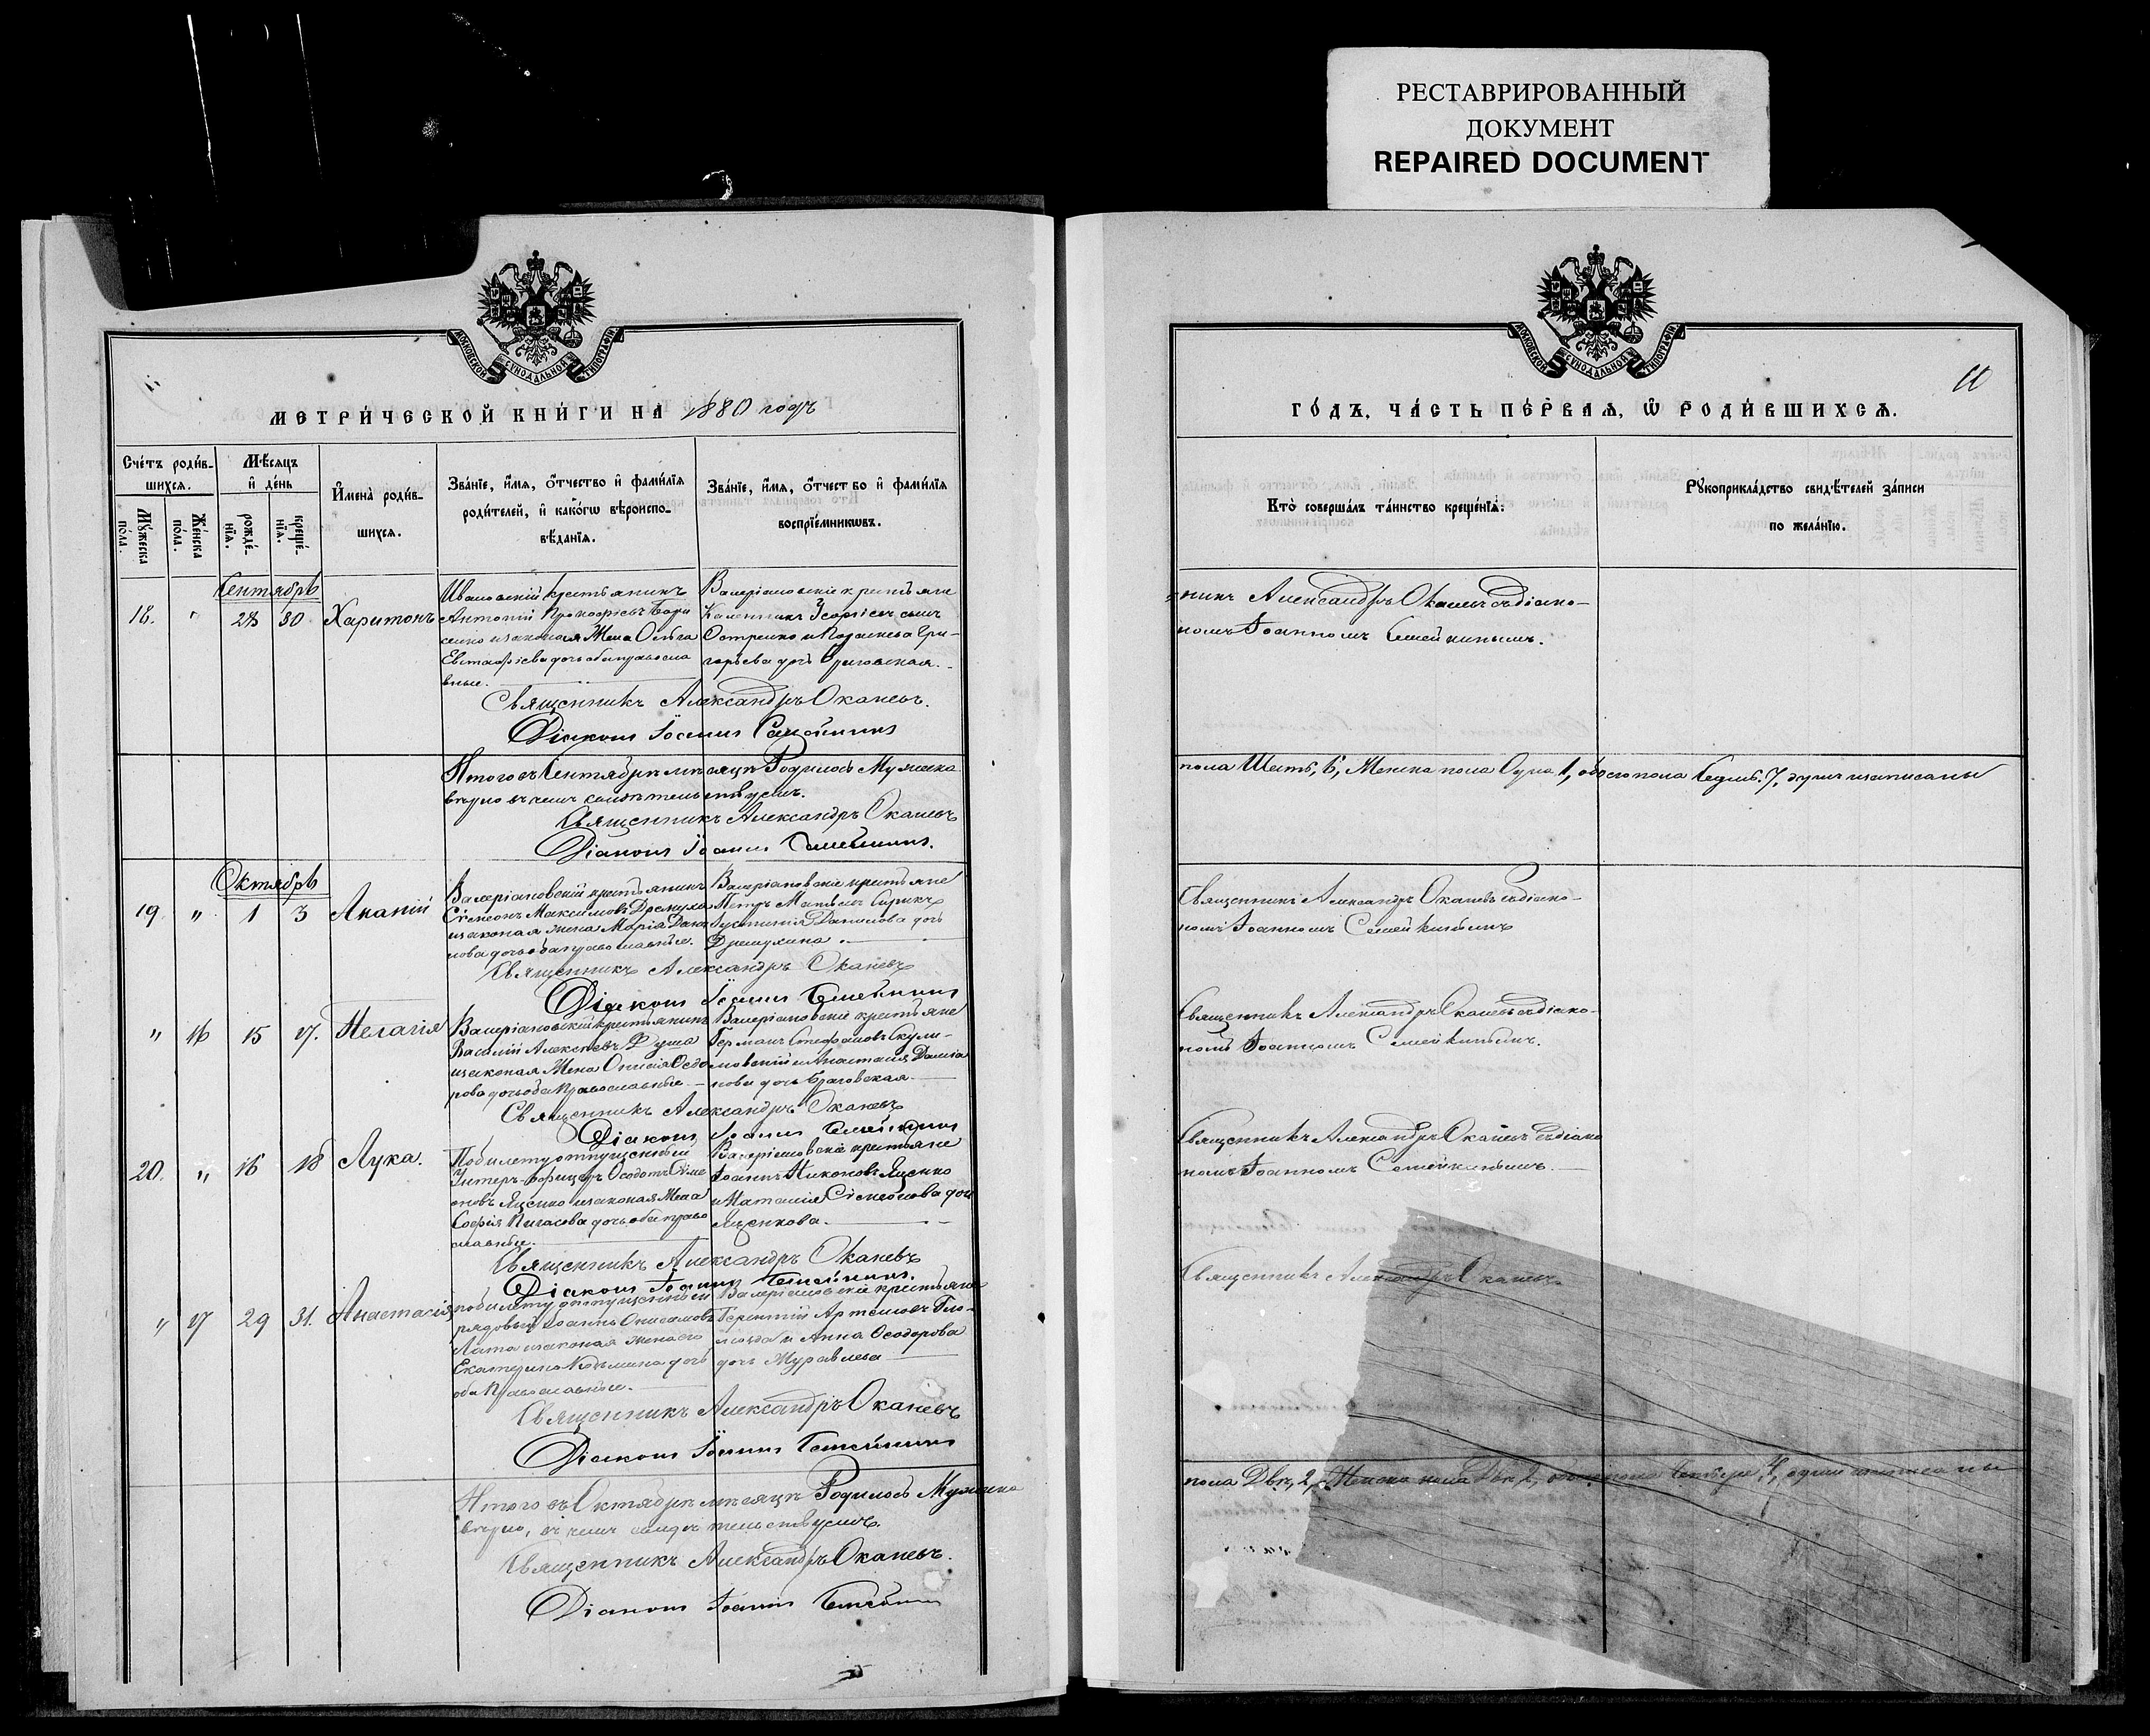 РЕСТАВРИРОВАННЫЙ
ДОКУМЕНТ
REPAIRED DOCUMENT
МОСКОВСКОЙ СѴНОДАЛЬНОЙ ТИПОГРАФІИ
МЕТРИ́ЧЕСКОЙ КНИ́ГИ НА 1880 годъ
Сче́тъ роди́в-
шихсѧ.
Мѣ́сѧцъ
и҆ де́нь
Мꙋ́жеска по́ла.
Же́нска по́ла.
рожде́-нїѧ.
креще́-нїѧ.
И҆мена̀ роди́в-
шихсѧ.
Зва́нїе, и҆́мѧ, ѻ҆́тчество и҆ фами́лїѧ
роди́телей, и҆ како́гѡ вѣроиспо-
вѣ́данїѧ.
Зва́нїе, и҆́мѧ, ѻ҆́тчество и҆ фами́лїѧ
воспрїе́мникѡвъ.
Сентябрь
18. " 28 30 Харитонъ
Ивановскій крестьянинъ
Антоній Прокофіевъ
и законная жена Ольга
Евстафіева дочь оба правосла
вные.
Валеріановскіе крестьяне
Остренко и
горьева дочь
Священникъ Александръ Оканевъ.
Діаконъ Іоаннъ Семейкинъ
Итого въ Сентябрѣ мѣсяцѣ Родилось Мужеска
вѣрно въ чемъ свидѣтельствуемъ.
Священникъ Александръ Оканевъ
Діаконъ Іоаннъ Семейкинъ.
Октябрь
19 " 1 3 Ананій
Валеріановскій крестьянинъ
Сѵмеонъ Максимовъ
и законная жена Марія
нова дочь оба православные.
Валеріановскіе крестьяне
Петръ Матвѣевъ
Іустинія Данилова дочь
Священникъ Александръ Оканевъ
Діаконъ Іоаннъ Семейкинъ
" 16 15 17. Пелагія
Валеріановскій крестьянинъ
Василій Алексѣевъ
и законная Жена Ѳеодо
рова дочь оба Православные
Валеріановскіе крестьяне
Германъ Стефановъ
и Анастасія
нова дочь
Священникъ Александръ Оканевъ
Діаконъ Іоаннъ Семейкинъ
20. " 16 18 Лука.
По билету отпущенный
Унтеръ-офицеръ Ѳеодотъ Сѵме
оновъ Яценко и законная Жена
Софія дочь оба право
славные.
Валеріановскіе крестьяне
Іоаннъ Никоновъ Яценко
и Наталія Сѵмеонова дочь
Яценкова.
Священникъ Александръ Оканевъ
Діаконъ Іоаннъ Семейкинъ.
" 17 29 31. Анастасія
по билету отпущенный
рядовый Іоаннъ
и законная жена его
Екатерина Козьмина дочь
оба Православные.
Валеріановскіе крестьяне
Терентій Артемовъ
и Анна Ѳеодорова
дочь Муравлева
Священникъ Александръ Оканевъ
Діаконъ Іоаннъ Семейкинъ
Итого въ Октябрѣ мѣсяцѣ Родилось Мужеска
вѣрно, въ чемъ свидѣтельствуемъ.
Священникъ Александръ Оканевъ.
Діаконъ Іоаннъ Семейкинъ
МОСКОВСКОЙ СѴНОДАЛЬНОЙ ТИПОГРАФІИ
ГО́ДЪ, ЧА́СТЬ ПЕ́РВАѦ, Ѽ РОДИ́ВШИХСѦ.
Кто̀ соверша́лъ та́инство креще́нїѧ.
Рꙋкоприкла́дство свидѣ́телей за́писи
по жела́нїю.
Александръ Оканевъ съ діако-
номъ Іоанномъ Семейкинымъ.
пола Шесть, 6, Женска пола Одна 1, обоего пола Седмь 7, записаны
Священникъ Александръ Оканевъ съ діако-
номъ Іоанномъ Семейкинымъ
Священникъ Александръ Оканевъ съ діако-
номъ Іоанномъ Семейкинымъ.
Священникъ Александръ Оканевъ съ діако
номъ Іоанномъ Семейкинымъ.
Священникъ Александръ Оканевъ
пола Двѣ, 2, Женска пола Двѣ 2, обоего пола Четыре 4,